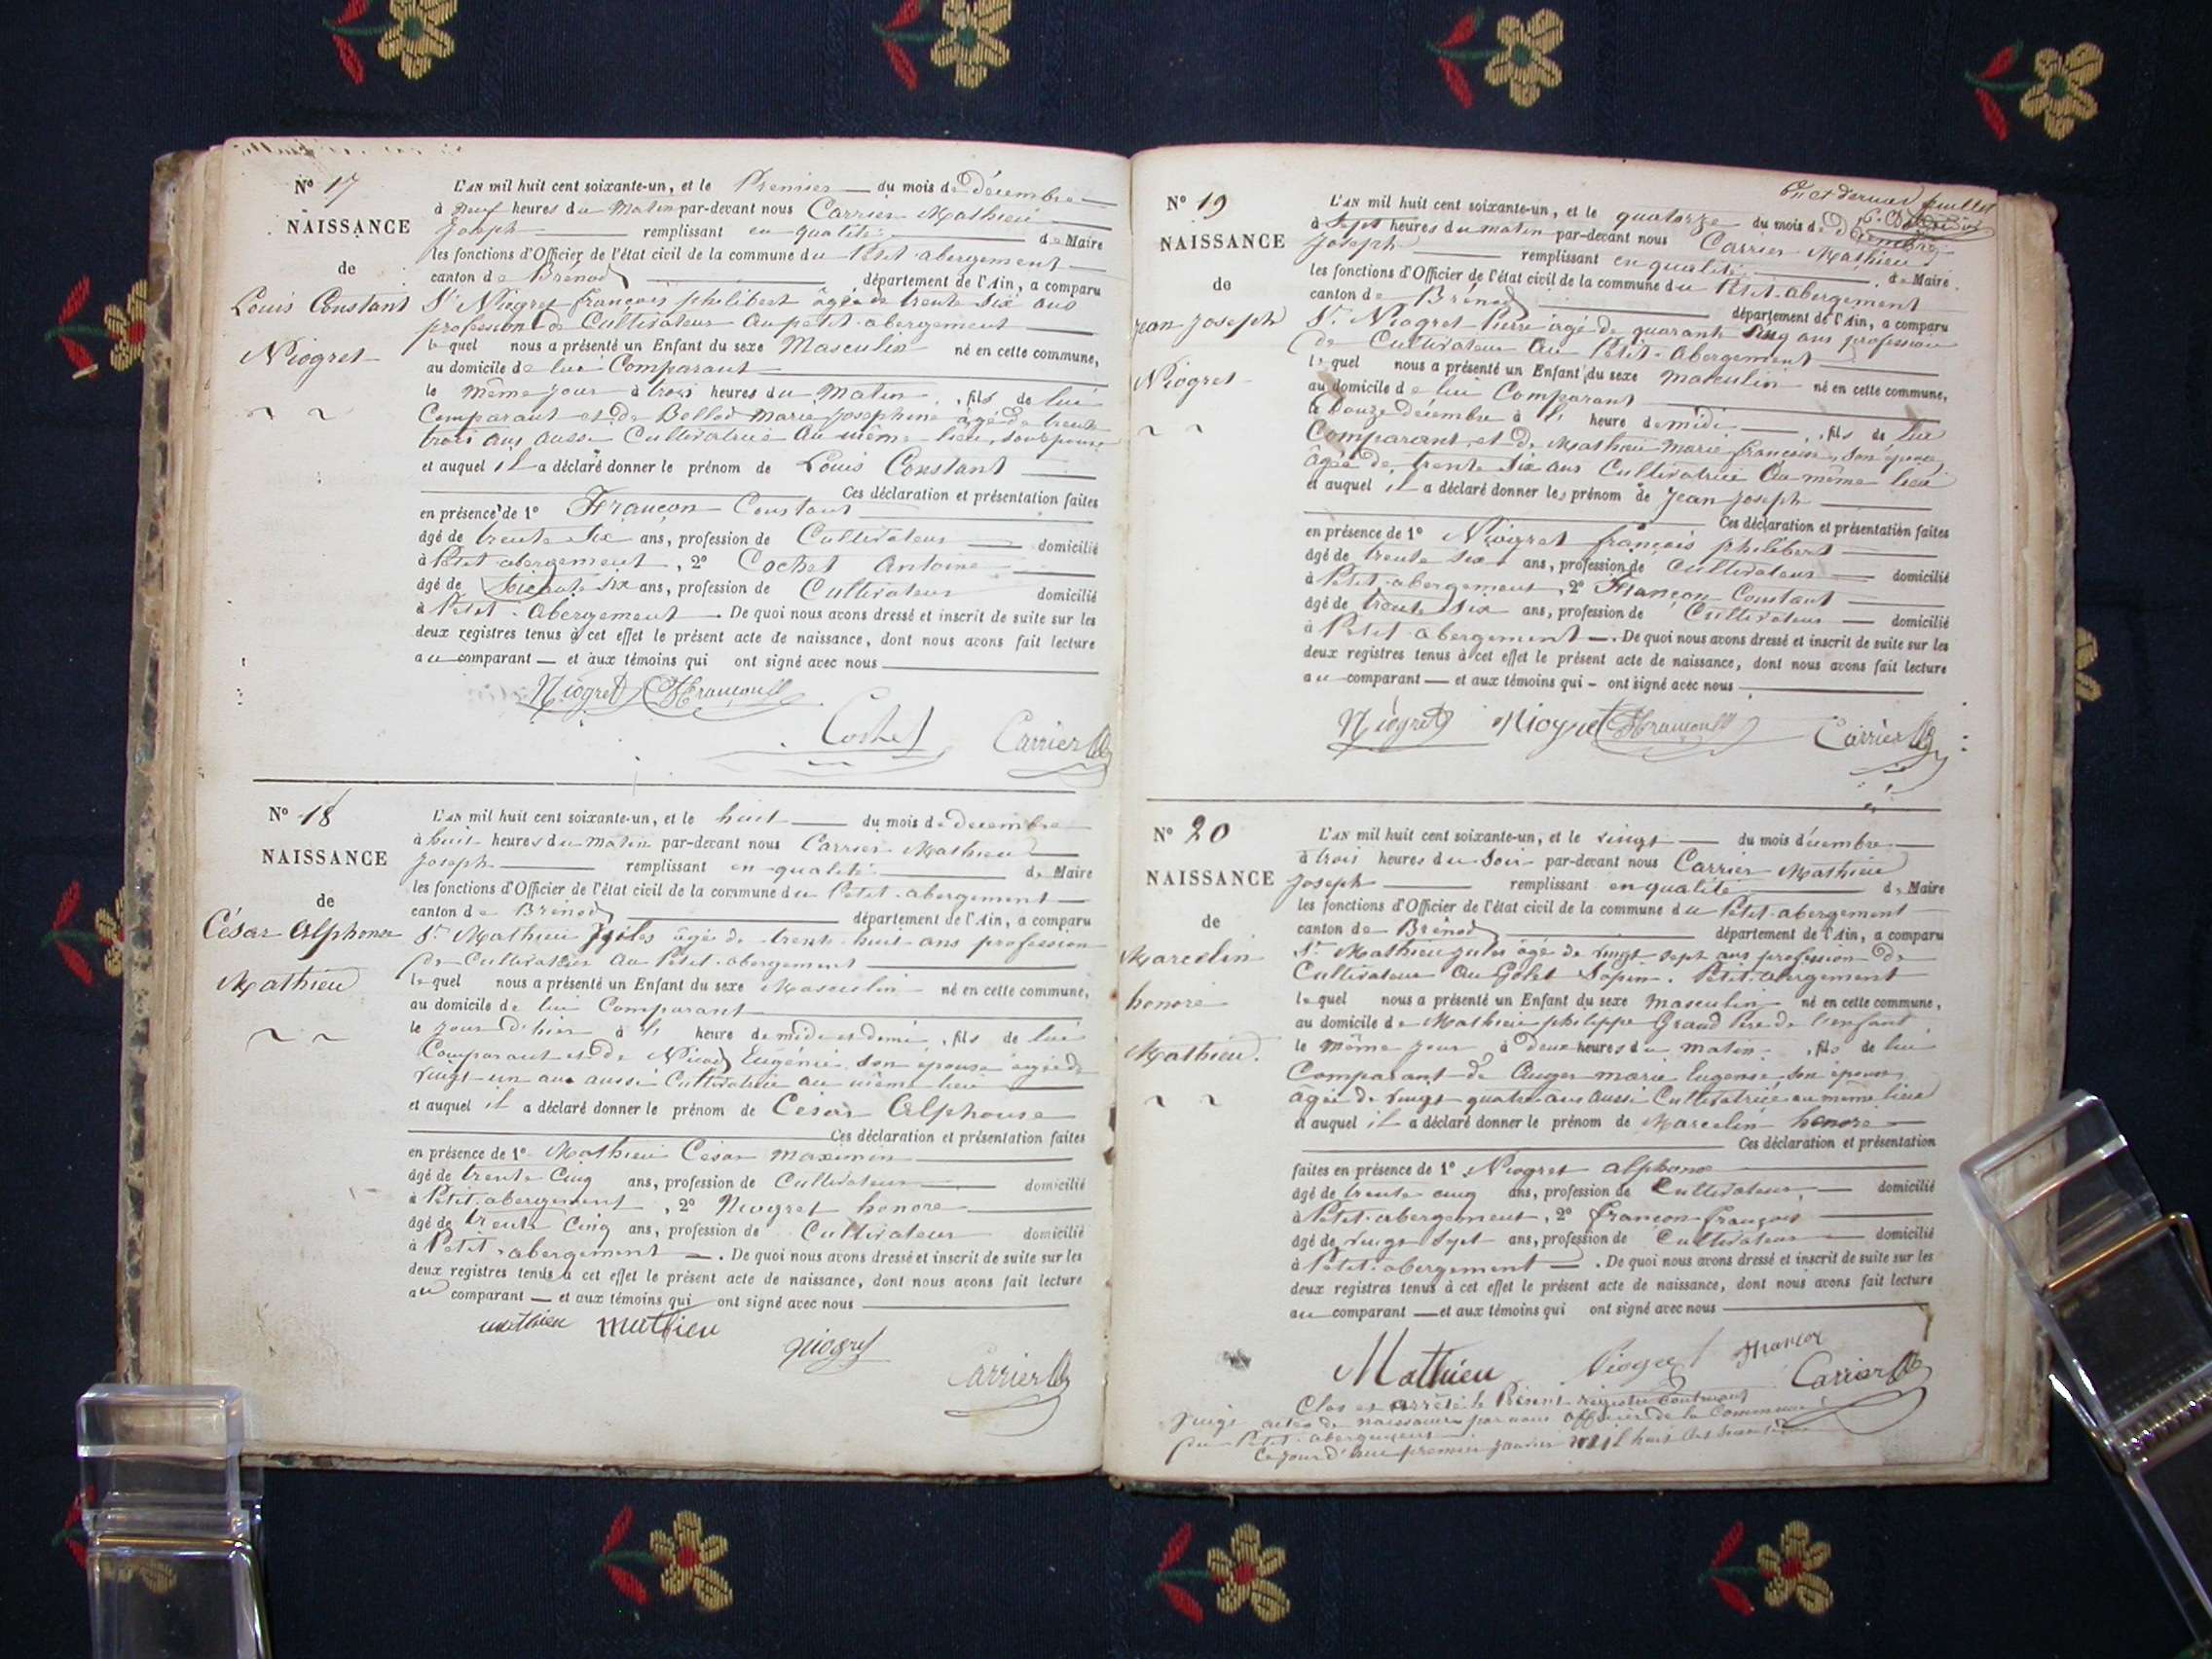 Nº 17
NAISSANCE
de
Louis Constant
Niogret
L'AN mil huit cent soixante-un, et le Premier du mois de décembre
à neuf heures du Matin par-devant nous Carrier Mathieu
Joseph remplissant en qualité de Maire
les fonctions d'Officier de l'état civil de la commune du Petit-abergement
canton de Brénod département de l'Ain, a comparu
Sr Niogret françois philibert âgé de trente six ans
profession de Cultivateur au petit-abergement
lequel nous a présenté un Enfant du sexe Masculin né en cette commune,
au domicile de lui Comparant
le même jour à trois heures du Matin, fils de lui
Comparant et de Bollod Marie Josephine âgée de trente
trois ans aussi Cultivatrice au même lieu, son épouse
et auquel il a déclaré donner le prénom de Louis Constant
Ces déclaration et présentation faites
en présence de 1º Françon Constant
âgé de trente six ans, profession de Cultivateur domicilié
à Petit-abergement, 2º Cochet Antoine
âgé de six ans, profession de Cultivateur domicilié
à Petit-Abergement. De quoi nous avons dressé et inscrit de suite sur les
deux registres tenus à cet effet le présent acte de naissance, dont nous avons fait lecture
au comparant et aux témoins qui ont signé avec nous
Niogret Françon
Cochet Carrier
Nº 18
NAISSANCE
de
César Alphonse
Mathieu
L'AN mil huit cent soixante-un, et le huit du mois de decembre
à huit heures du matin par-devant nous Carrier Mathieu
Joseph remplissant en qualité de Maire
les fonctions d'Officier de l'état civil de la commune du Petit-abergement
canton de Brénod département de l'Ain, a comparu
Sr Mathieu âgé de trente huit ans profession
de Cultivateur au Petit-abergement
lequel nous a présenté un Enfant du sexe Masculin né en cette commune,
au domicile de lui Comparant
le jour d'hier à l' heure de midi et demi, fils de lui
Comparant et de Nicod Eugénie son épouse âgée de
vingt-un ans aussi Cultivatrice au même lieu
et auquel il a déclaré donner le prénom de César Alphonse
Ces déclaration et présentation faites
en présence de 1º Mathieu César maximin
âgé de trente Cinq ans, profession de Cultivateur domicilié
à Petit-abergement, 2º Niogret honoré
âgé de trente Cinq ans, profession de Cultivateur domicilié
à Petit-abergement. De quoi nous avons dressé et inscrit de suite sur les
deux registres tenus à cet effet le présent acte de naissance, dont nous avons fait lecture
au comparant et aux témoins qui ont signé avec nous
mathieu mathieu
niogret
Carrier
et dernier feuillet
Nº 19
NAISSANCE
de
Jean Joseph
Niogret
L'AN mil huit cent soixante-un, et le quatorze du mois de décembre
à sept heures du matin par-devant nous Carrier Mathieu
Joseph remplissant en qualité de Maire
les fonctions d'Officier de l'état civil de la commune du Petit-abergement
canton de Brénod département de l'Ain, a comparu
Sr Niogret Pierre âgé de quarante cinq ans profession
de Cultivateur au Petit-abergement
lequel nous a présenté un Enfant du sexe masculin né en cette commune,
au domicile de lui Comparant
le Douze décembre à l' heure de midi, fils de lui
Comparant, et de Mathieu marie françoise, son épouse
âgée de trente six ans Cultivatrice au même lieu
et auquel il a déclaré donner les prénom de Jean Joseph
Ces déclaration et présentation faites
en présence de 1º Niogret françois philibert
âgé de trente six ans, profession de Cultivateur domicilié
à Petit-abergement, 2º Françon Constant
âgé de trente six ans, profession de Cultivateur domicilié
à Petit-abergement. De quoi nous avons dressé et inscrit de suite sur les
deux registres tenus à cet effet le présent acte de naissance, dont nous avons fait lecture
au comparant et aux témoins qui ont signé avec nous
Niogret Niogret Françon Carrier
Nº 20
NAISSANCE
de
Marcelin
honoré
Mathieu.
L'AN mil huit cent soixante-un, et le vingt du mois décembre
à trois heures du Soir par-devant nous Carrier Mathieu
Joseph remplissant en qualité de Maire
les fonctions d'Officier de l'état civil de la commune du Petit-abergement
canton de Brénod département de l'Ain, a comparu
Sr Mathieu jules âgé de vingt sept ans profession de
Cultivateur au Golet Sapin. Petit-abergement
lequel nous a présenté un Enfant du sexe Masculin né en cette commune,
au domicile de Mathieu philippe Grand Père de l'enfant
le même jour à deux heures du matin, fils de lui
Comparant de Auger marie Eugenie son épouse,
âgée de vingt quatre ans aussi Cultivatrice au même lieu
et auquel il a déclaré donner le prénom de Marcelin honoré
Ces déclaration et présentation
faites en présence de 1º Niogret alphonse
âgé de trente cinq ans, profession de Cultivateur, domicilié
à Petit-abergement, 2º françon françois
âgé de vingt sept ans, profession de Cultivateur domicilié
à Petit-abergement. De quoi nous avons dressé et inscrit de suite sur les
deux registres tenus à cet effet le présent acte de naissance, dont nous avons fait lecture
au comparant et aux témoins qui ont signé avec nous
Mathieu Niogret françon
Carrier
Clos et arrêté le Présent registre contenant
vingt actes de naissances par nous officier de la Commune
du Petit-abergement
Ce jour d'hui premier janvier mil huit cent soixante